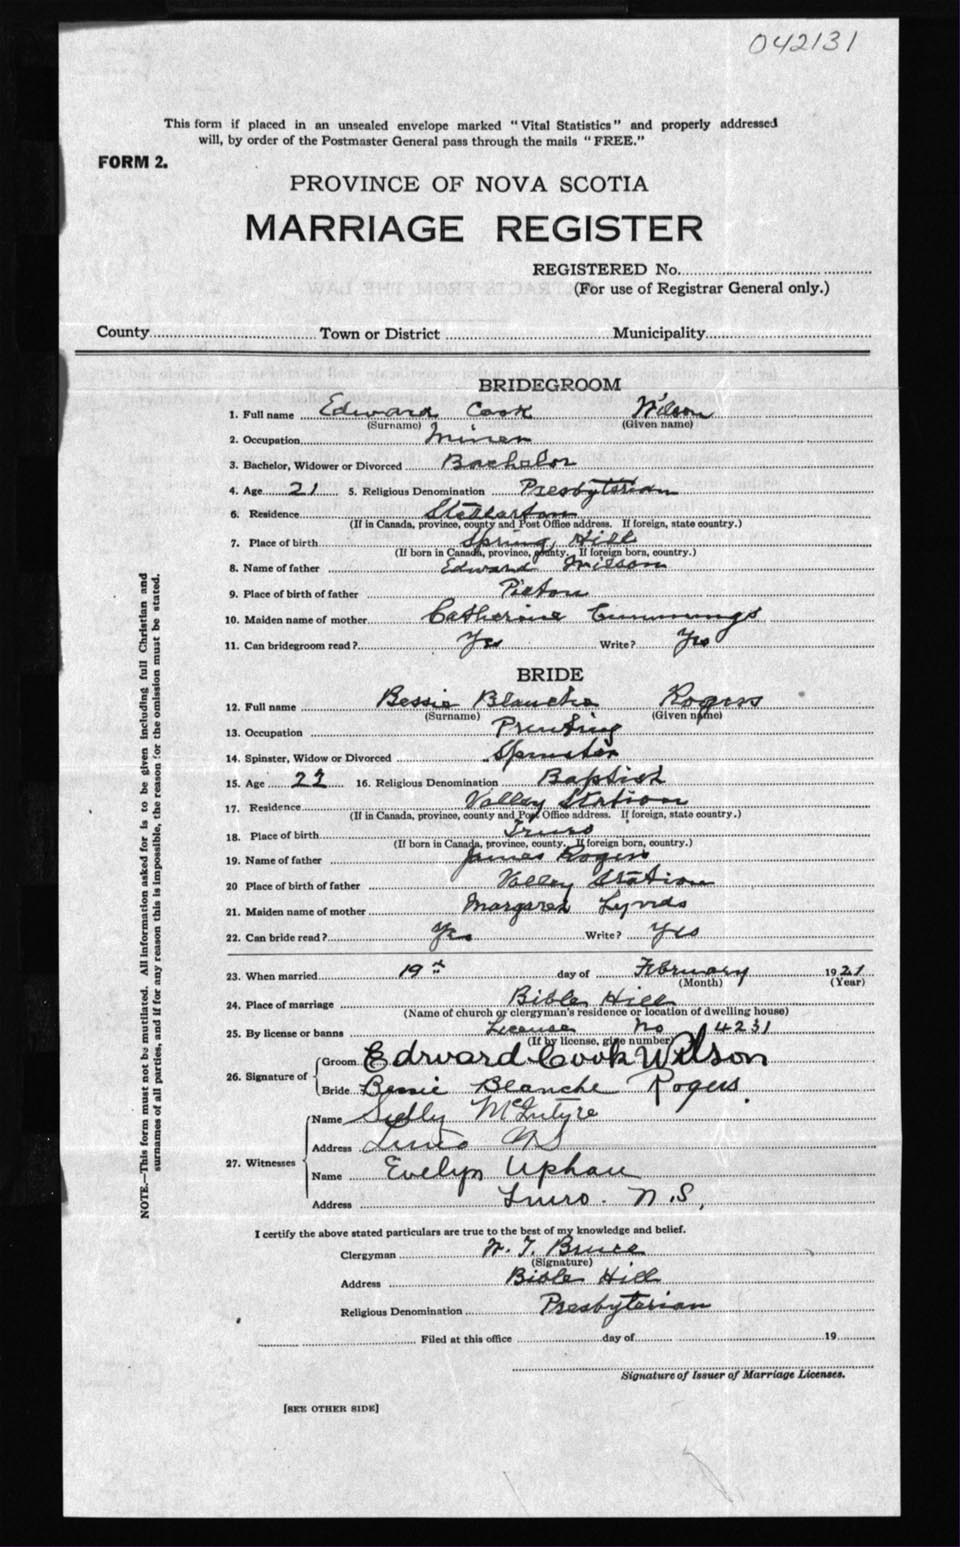 042131
This form if placed in an unsealed envelope marked "Vital Statistics" and properly addressed
will, by order of the Postmaster General pass through the mails "FREE."
FORM 2.
PROVINCE OF NOVA SCOTIA
MARRIAGE REGISTER
REGISTERED No.
(For use of Registrar General only.)
County Town or District Municipality
BRIDEGROOM
1. Full name Edward Cook Wilson
(Surname) (Given name)
2. Occupation Miner
3. Bachelor, Widower or Divorced Bachelor
4. Age 21 5. Religious Denomination Presbyterian
6. Residence Stellarton
(If in Canada, province, county and Post Office address. If foreign, state country.)
7. Place of birth Spring Hill
(If born in Canada, province, county. If foreign born, country.)
8. Name of father Edward Wilson
9. Place of birth of father Pictou
10. Maiden name of mother Catherine Cummings
11. Can bridegroom read? Yes Write? Yes
BRIDE
12. Full name Bessie Blanche Rogers
(Surname) (Given name)
13. Occupation Printing
14. Spinster, Widow or Divorced Spinster
15. Age 22 16. Religious Denomination Baptist
17. Residence Valley Station
(If in Canada, province, county and Post Office address. If foreign, state country.)
18. Place of birth Truro
(If born in Canada, province, county. If foreign born, country.)
19. Name of father James Rogers
20 Place of birth of father Valley Station
21. Maiden name of mother Margaret Lynds
22. Can bride read? Yes Write? Yes
23. When married 19th day of February 1921
(Month) (Year)
24. Place of marriage Bible Hill
(Name of church or clergyman's residence or location of dwelling house)
25. By license or banns License No 4231
(If by license, give number)
26. Signature of Groom Edward Cook Wilson
Bride Bessie Blanche Rogers.
27. Witnesses
Name McIntyre
Address Truro NS
Name Evelyn Upham
Address Truro. N.S,
I certify the above stated particulars are true to the best of my knowledge and belief.
Clergyman W. T. Bruce
(Signature)
Address Bible Hill
Religious Denomination Presbyterian
Filed at this office day of 19
Signature of Issuer of Marriage Licenses.
[SEE OTHER SIDE]
NOTE.—This form must not be mutilated. All information asked for is to be given including full Christian and
surnames of all parties, and if for any reason this is impossible, the reason for the omission must be stated.